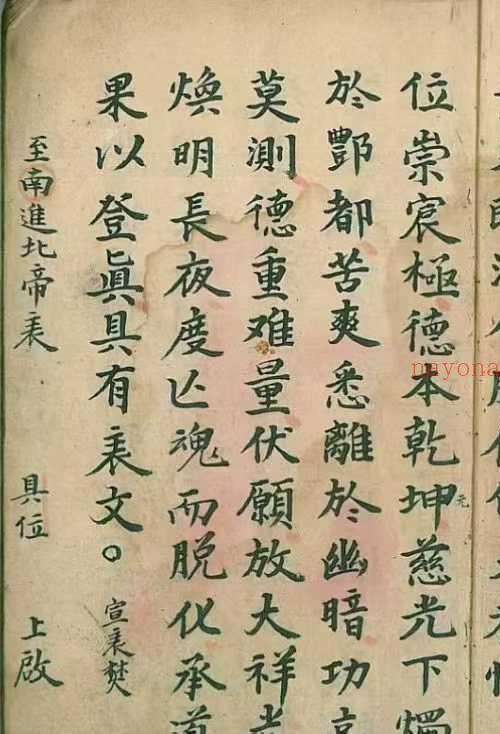 位崇宸極德本乾坤慈光下燭
元
於酆都苦爽悉離於幽暗功
莫測德重难量伏願放大祥
煥明長夜度亾魂而脱化承道
果以登眞具有表文。宣表焚
至南進北帝表 具位 上啟
nuyona